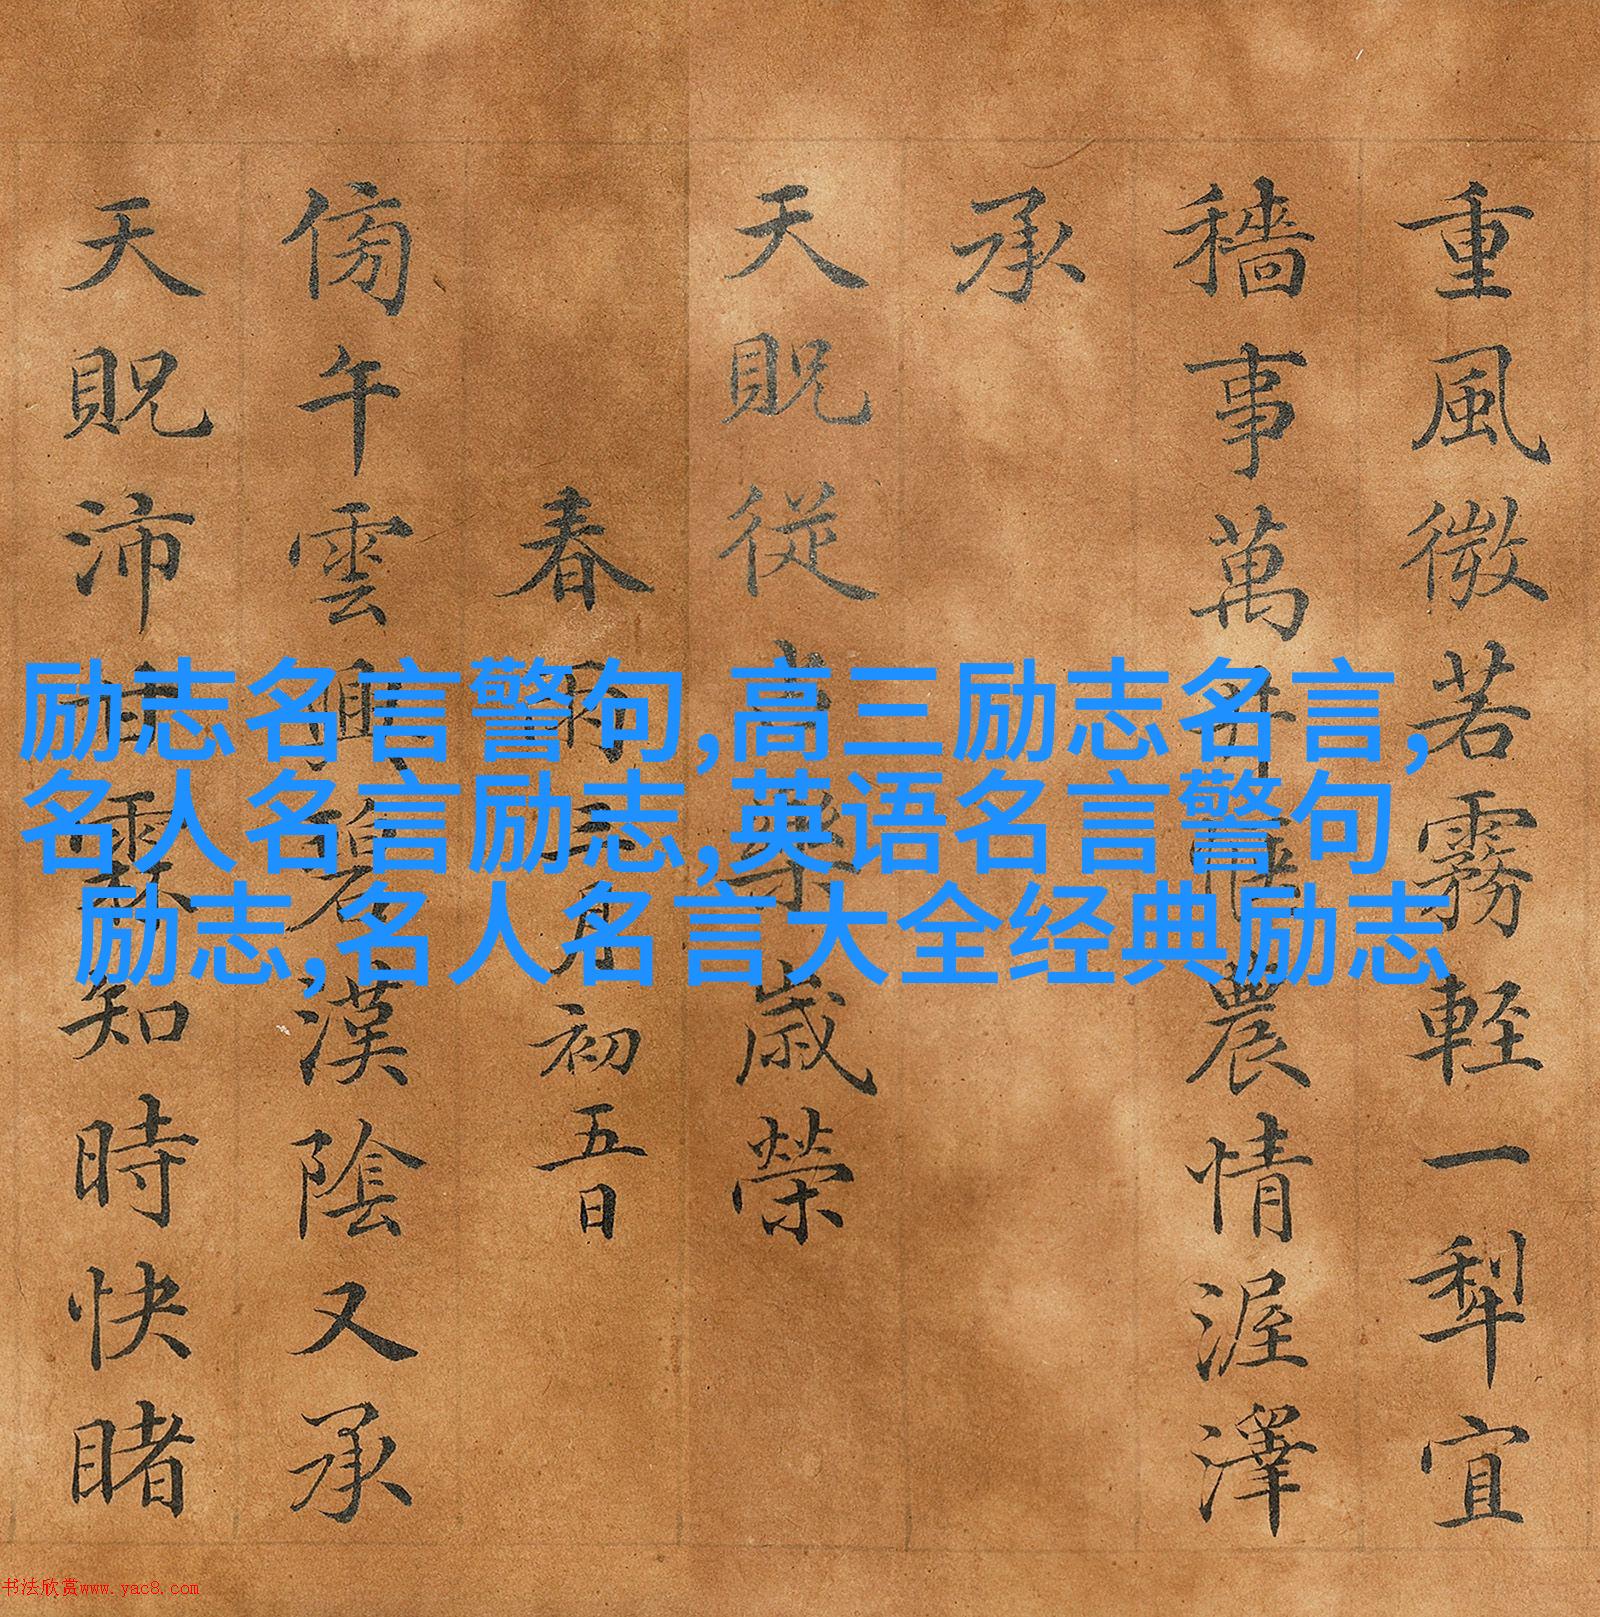 重風微若霧輕一犁宜
穡事萬井農情渥澤
承
天貺從樂歲榮
春雨
三月初五日
傍午雲興碧漢陰又承
天貺沛甘霖知時快睹
励志名言警句,高三励志名言,
名人名言励志,英语名言警句
励志,名人名言大全经典励志
书法欣赏www.yac8.com